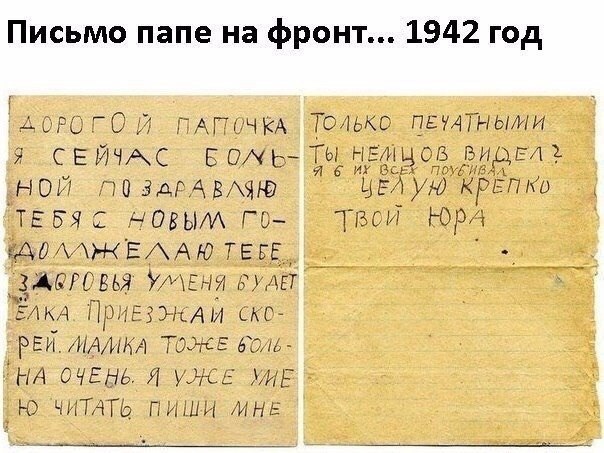 Письмо папе на фронт... 1942 год
ДОРОГОЙ ПАПОЧКА
Я СЕЙЧАС БОЛЬ-
НОЙ ПОЗДРАВЛЯЮ
ТЕБЯ С НОВЫМ ГО-
ДОМ ЖЕЛАЮ ТЕБЕ
ЗДОРОВЬЯ УМЕНЯ БУДЕТ
ЁЛКА. ПРИЕЗЖАЙ СКО-
РЕЙ. МАМКА ТОЖЕ БОЛЬ-
НА ОЧЕНЬ. Я УЖЕ УМЕ
Ю ЧИТАТЬ ПИШИ МНЕ
ТОЛЬКО ПЕЧАТНЫМИ
ТЫ НЕМЦОВ ВИДЕЛ?
Я Б ИХ ВСЕХ ПОУБИВАЛ
ЦЕЛУЮ КРЕПКО
ТВОЙ ЮРА